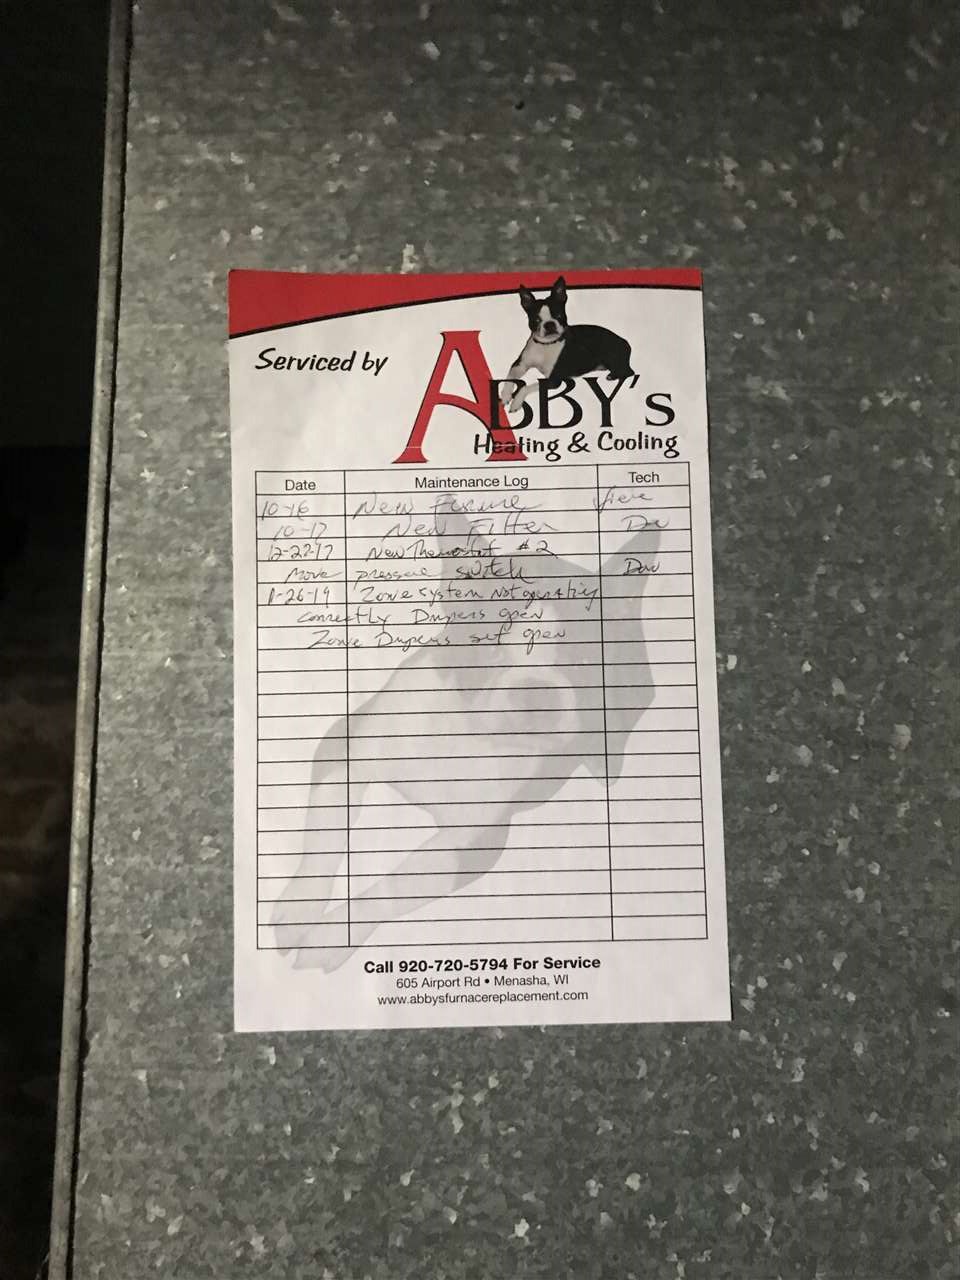 Serviced by
ABBY's
Heating & Cooling
Date Maintenance Log Tech
10-16 New Furune
10-17 New Filter
12-27-17 New Thermostat #2
Move pressure switch Dav
1-26-19 Zone system Not operating
correctly Dmpers open
Zone Dmpers set open
Call 920-720-5794 For Service
605 Airport Rd • Menasha, WI
www.abbysfurnacereplacement.com